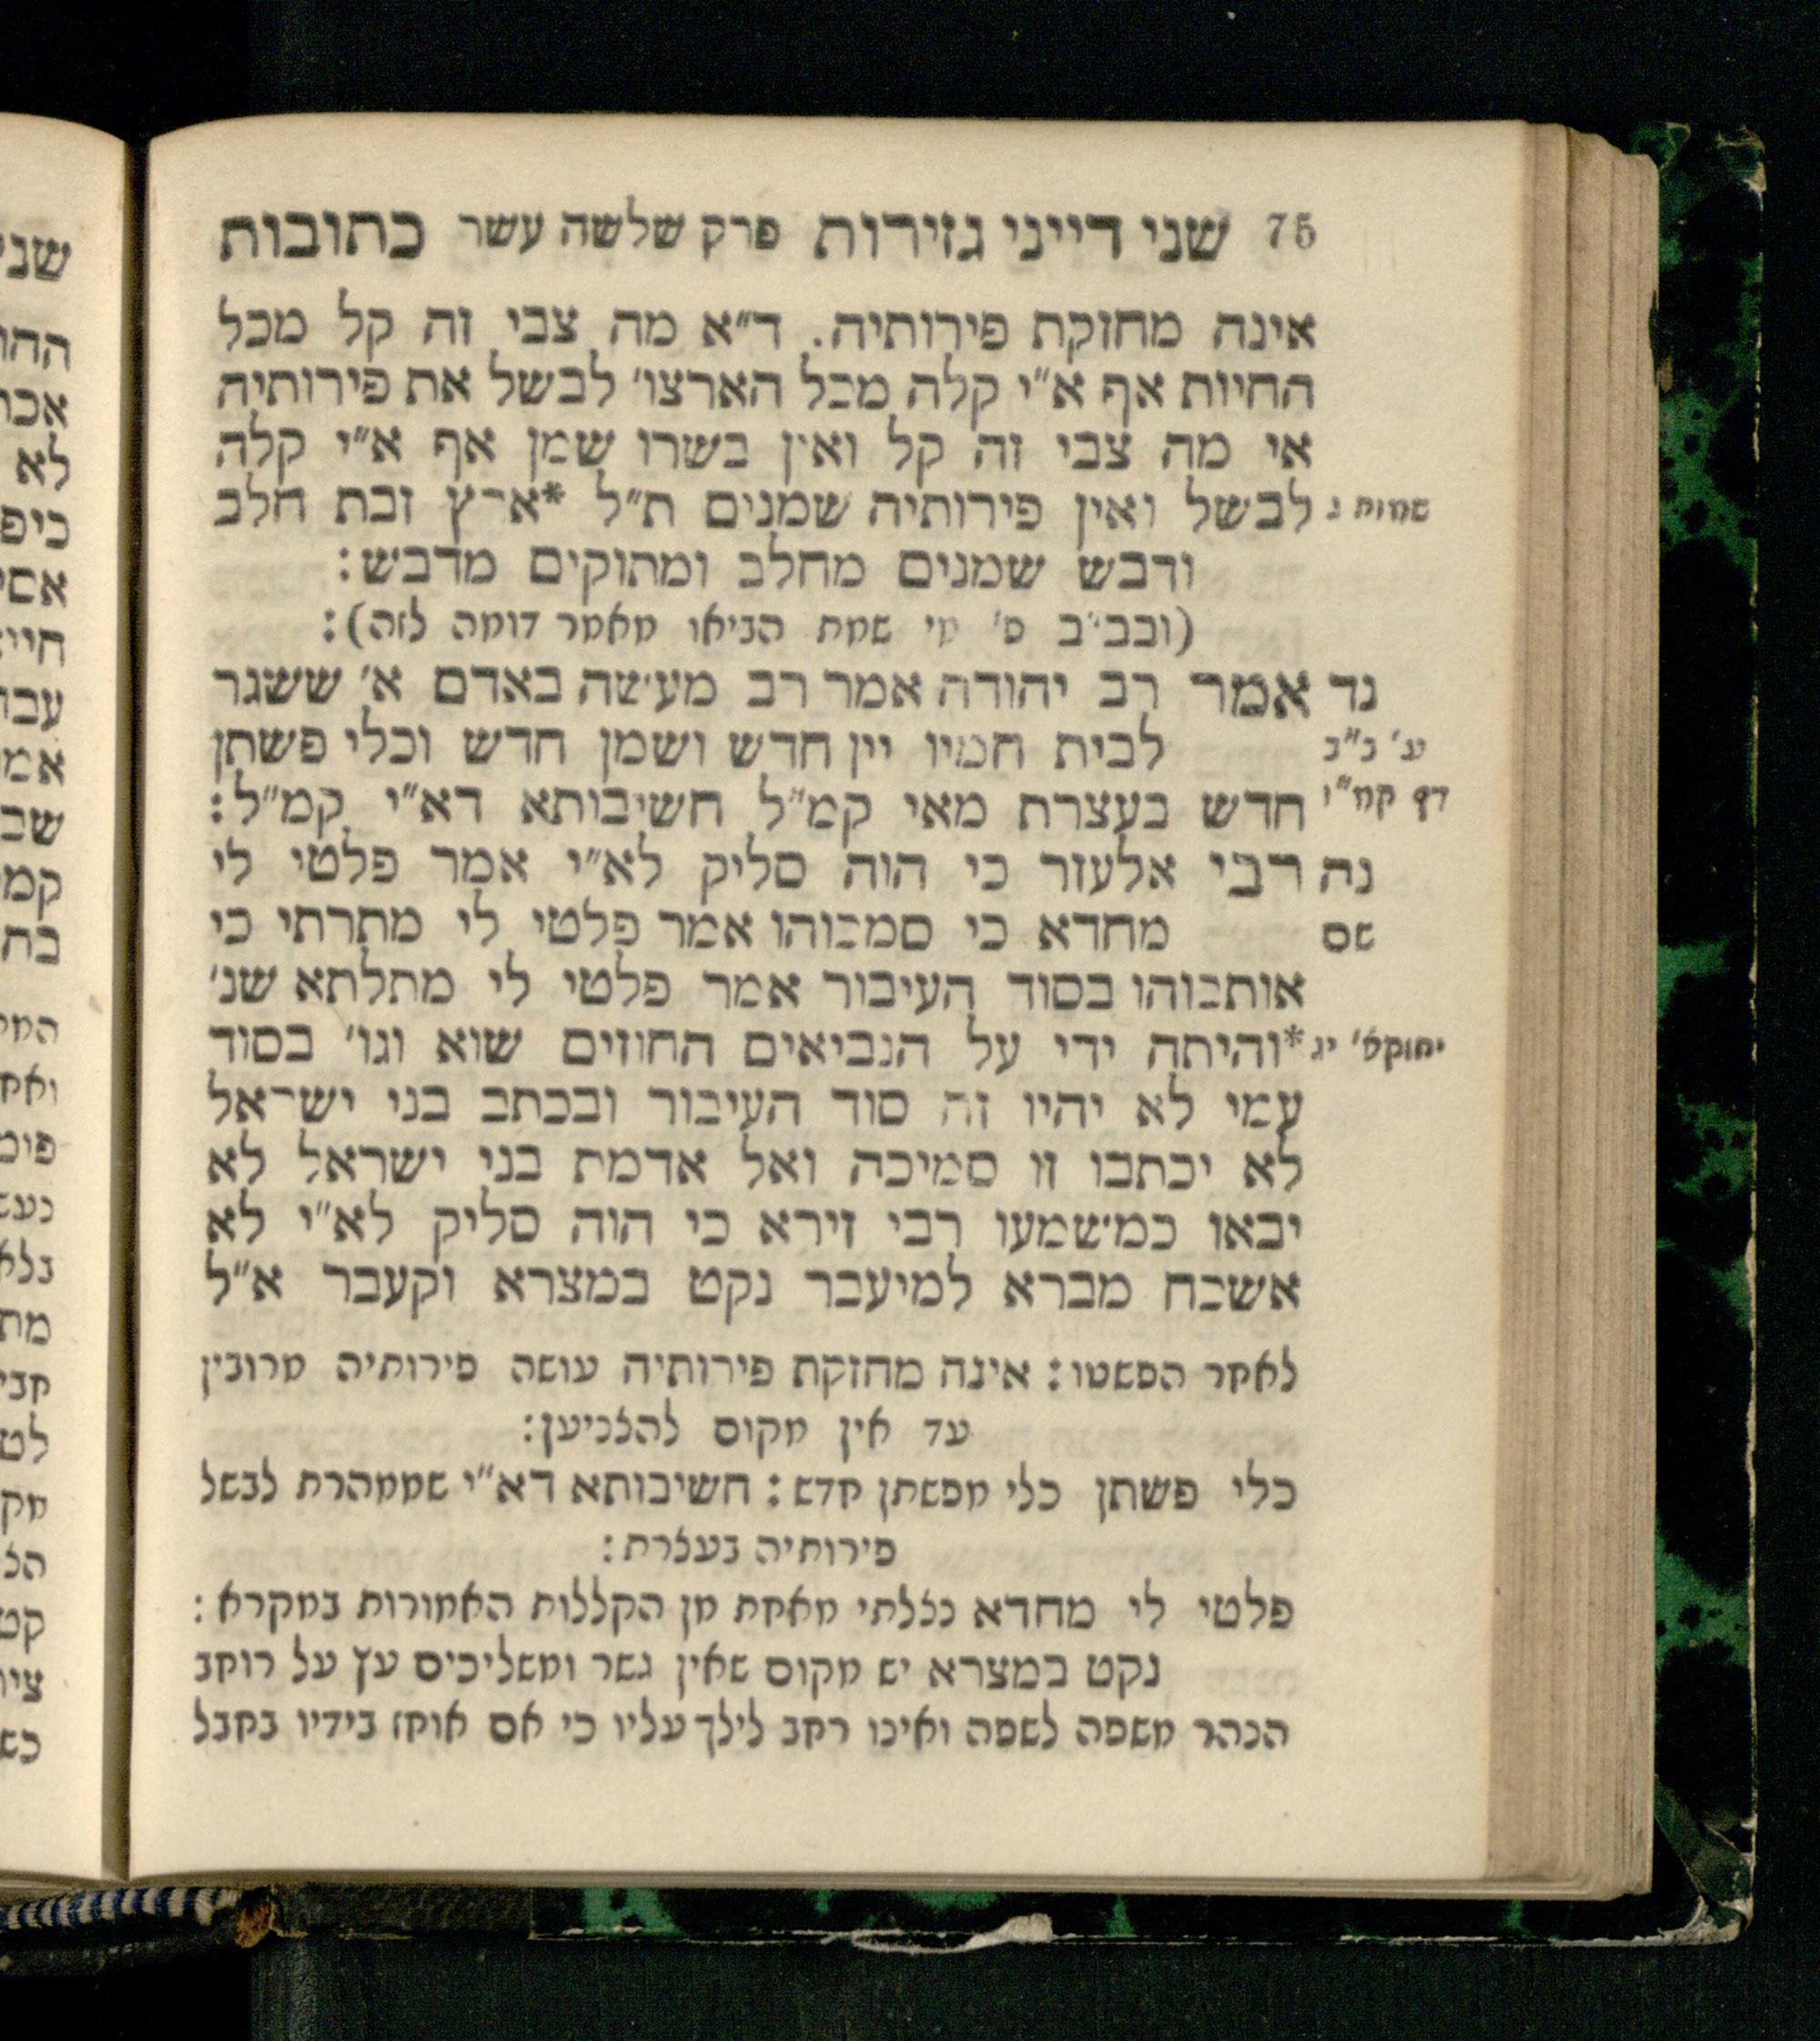 75 שני דייני גזירות פרק שלשה עשר כתובות
אינה מחזקת פירותיה. ד״א מה צבי זה קל מכל
החיות אף א״י קלה מכל הארצו׳ לבשל את פירותיה
אי מה צבי זה קל ואין בשרו שמן אף א״י קלה
שמות ג לבשל ואין פירותיה שמנים ת״ל *ארץ זבת חלב
ודבש שמנים מחלב ומתוקים מדבש:
(ובב״ב ס׳ מי שמת הביאו מאמר דומה לזה):
נד אמר רב יהודה אמר רב מעשה באדם א׳ ששגר
ע׳ ב״ב לבית חמיו יין חדש ושמן חדש וכלי פשתן
דף קמ״ו חדש בעצרת מאי קמ״ל חשיבותא דא״י קמ״ל:
נה רבי אלעזר כי הוה סליק לא״י אמר פלטי לי
שם מחדא כי סמכוהו אמר פלטי לי מתרתי כי
אותבוהו בסוד העיבור אמר פלטי לי מתלתא שנ׳
יחזקא׳ יג *והיתה ידי על הנביאים החוזים שוא וגו׳ בסוד
עמי לא יהיו זה סוד העיבור ובכתב בני ישראל
לא יכתבו זו סמיכה ואל אדמת בני ישראל לא
יבאו כמשמעו רבי זירא כי הוה סליק לא״י לא
אשכח מברא למיעבר נקט במצרא וקעבר א״ל
לאחר הפשטו: אינה מחזקת פירותיה עושה פירותיה מרובין
עד אין מקום להצניען:
כלי פשתן כלי מפשתן חדש: חשיבותא דא״י שממהרת לבשל
פירותיה בעצרת:
פלטי לי מחדא נצלתי מאחת מן הקללות האמורות במקרא:
נקט במצרא יש מקום שאין גשר ומשליכים עץ על רוחב
הנהר משפה לשפה ואינו רחב לילך עליו כי אם אוחז בידיו בחבל